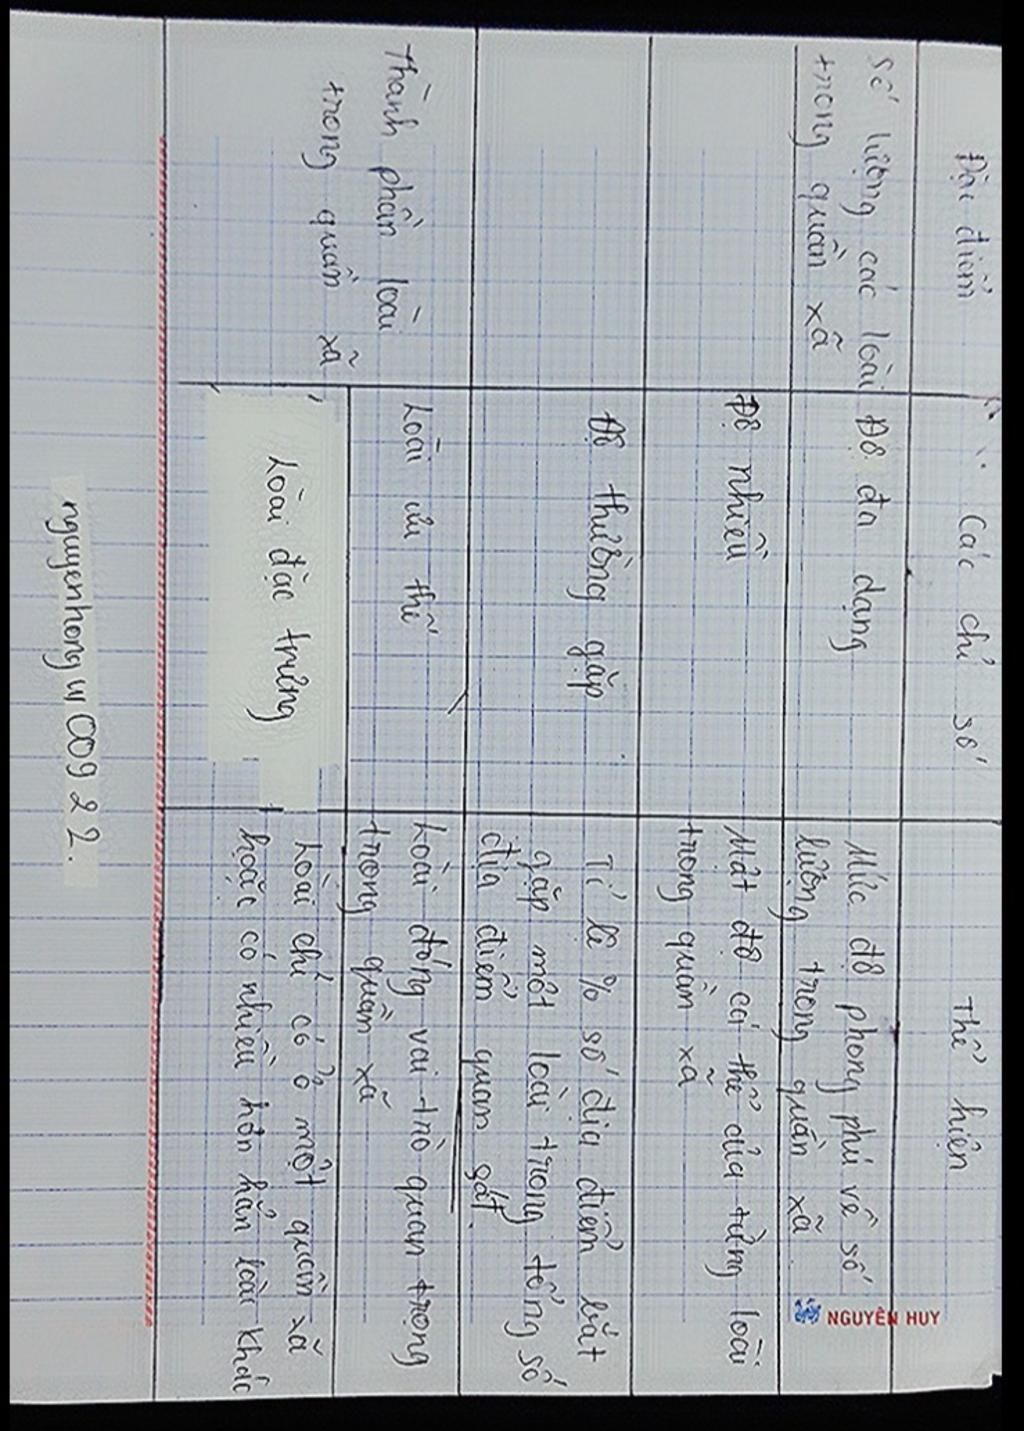 Đặc điểm
Các chỉ số
Thể hiện
Số lượng các loài
trong quần xã
Độ đa dạng
Mức độ phong phú về số
lượng trong quần xã
Độ nhiều
Mật độ cá thể của từng loài
trong quần xã
Độ thường gặp
Tỉ lệ % số địa điểm bắt
gặp một loài trong tổng số
địa điểm quan sát.
Thành phần loài
trong quần xã
Loài ưu thế
Loài đóng vai trò quan trọng
trong quần xã
Loài đặc trưng
Loài chỉ có ở một quần xã
hoặc có nhiều hơn hẳn loài khác
NGUYÊN HUY